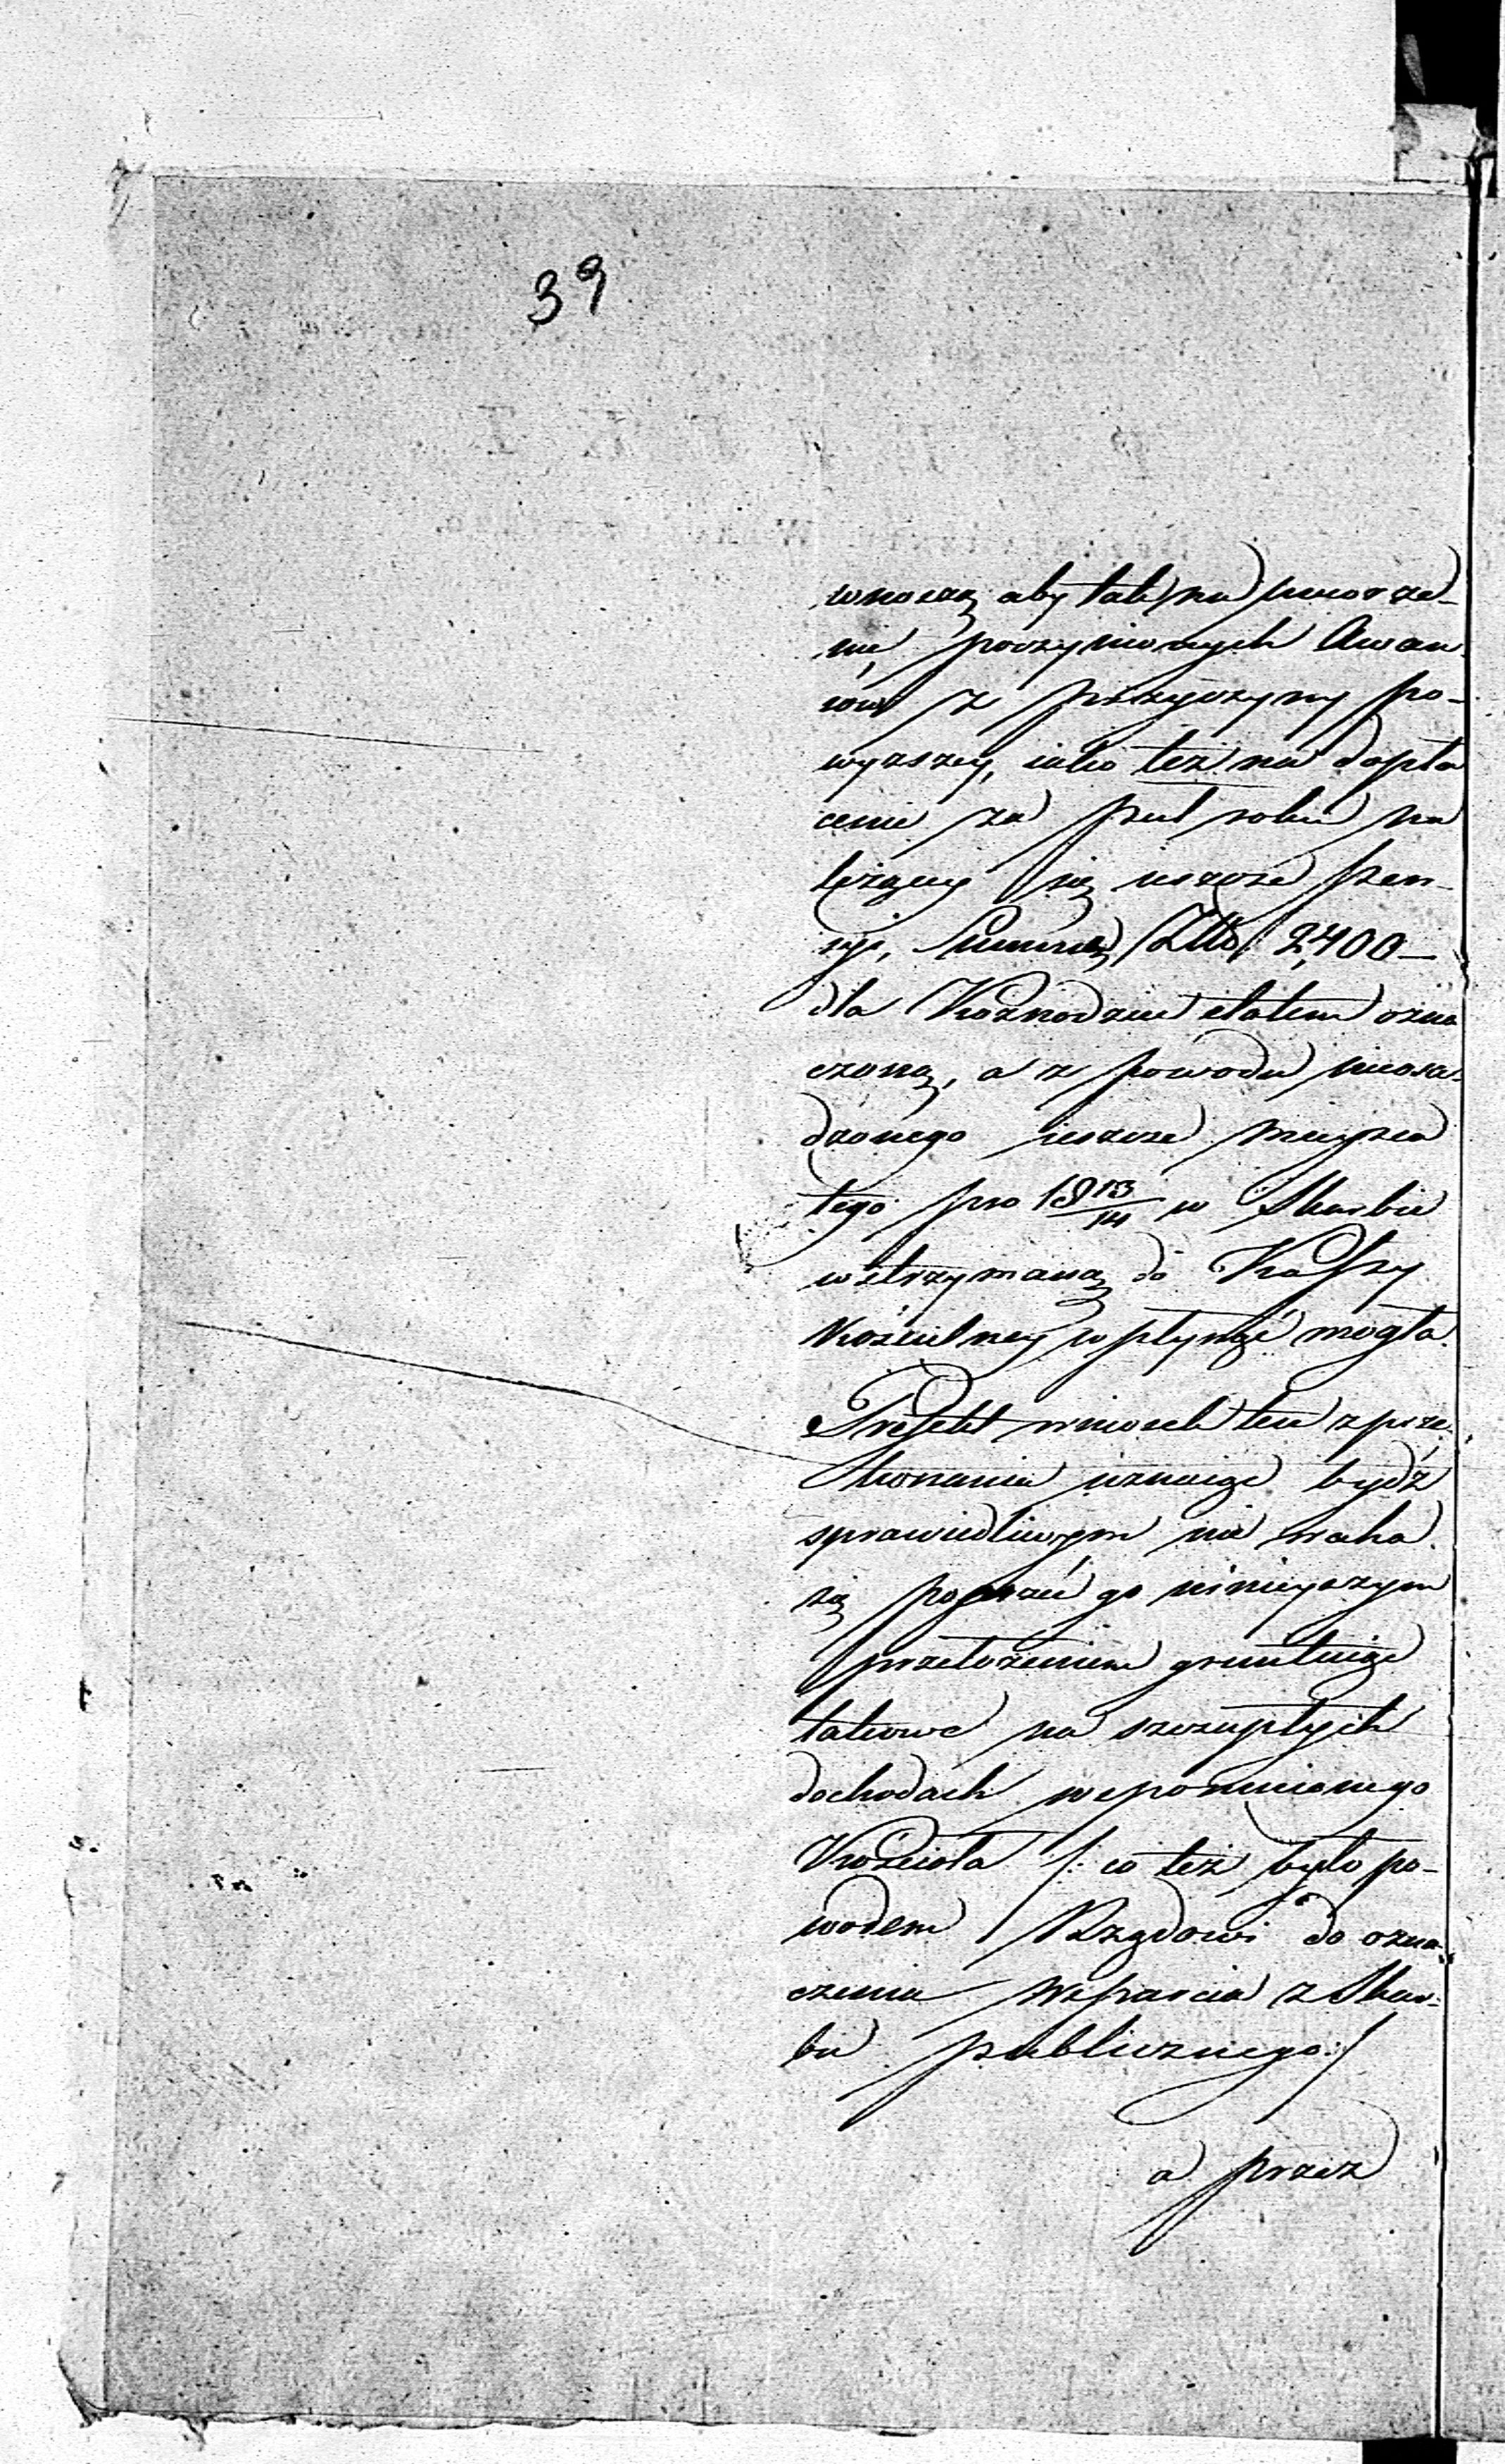 39
wnoszą aby tak na umorze-
nie poczynionych Awan-
sów z przyczyny po-
wyższey, iako też na dopła
cenie za puł roku na
leżącey się ieszcze pen-
syi, Summa Złt: 2,400 —
dla Kaznodziei etatem ozna
czona, a z powodu nieosa-
dzonego ieszcze mieysca
tego pro 18 13/14 w Skarbie
wstrzymana do Kassy
Kościelney wpłynąć mogła.
Prefekt wniosek ten z prze-
konania uznaiąc bydź
sprawiedliwym nie waha
się poprzeć go ninieyszym
przełożeniem gruntuiąc
takowe na szczupłych
dochodach wspomnionego
Kościoła /: co też było po-
wodem Rządowi do ozna-
czenia wsparcia z Skar-
bu publicznego :/
a przez